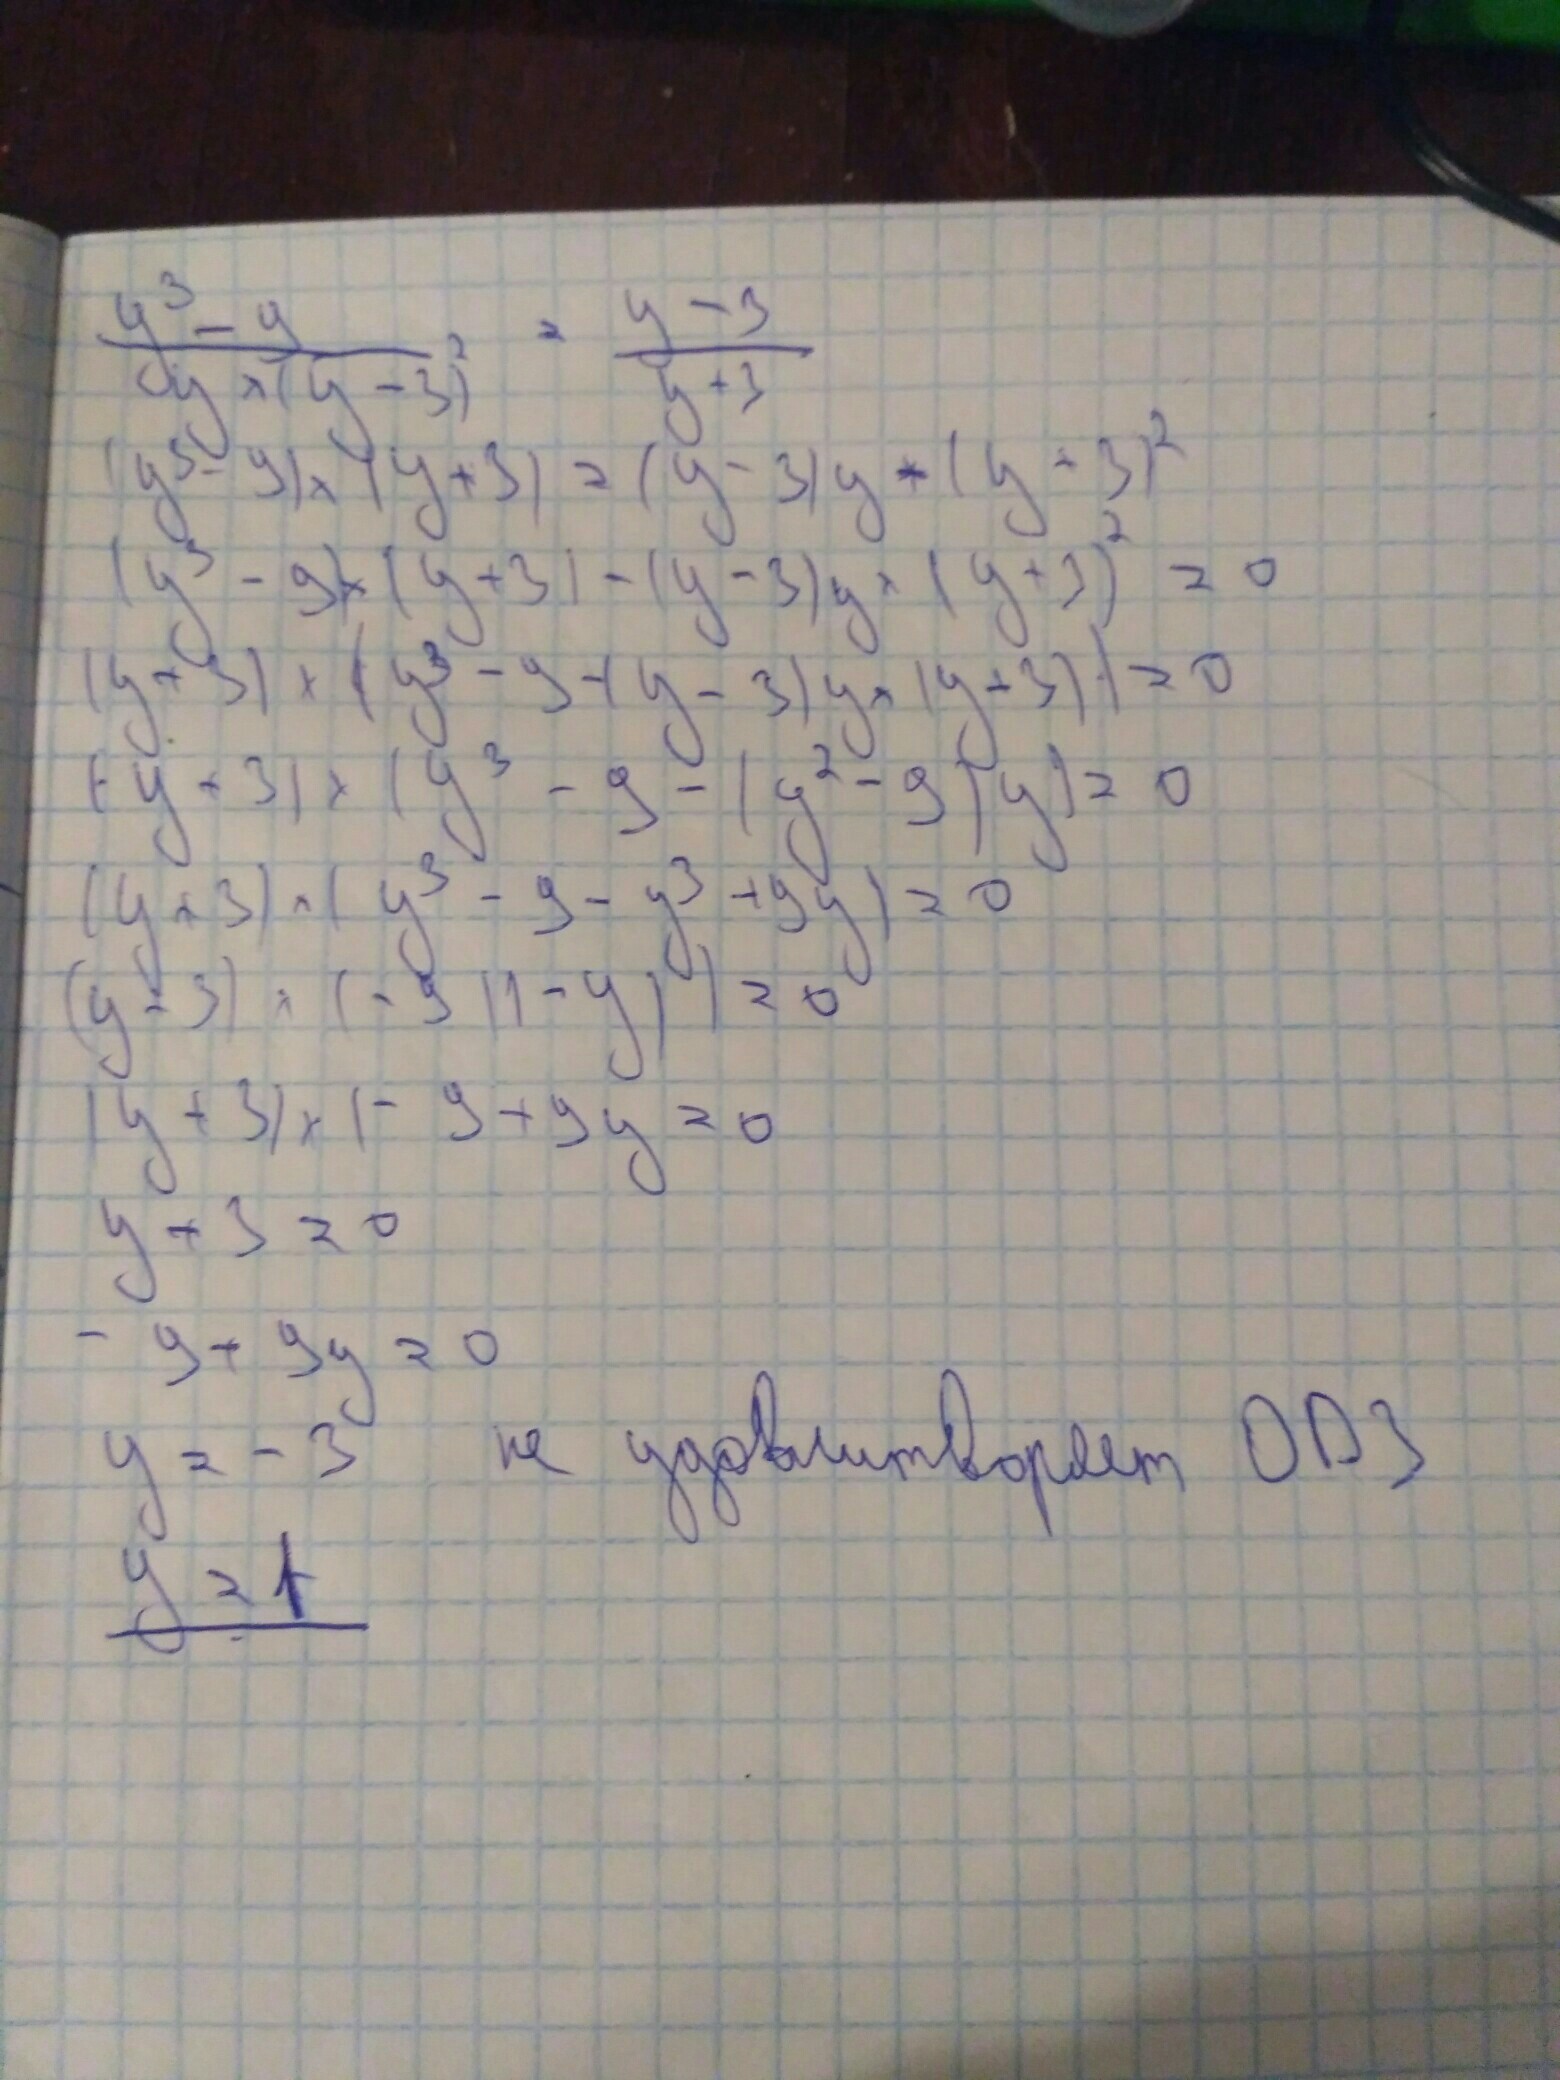 y³ - 9 / y × (y - 3)² = y - 3 / y + 3
(y³ - 9) × (y + 3) = (y - 3) y × (y + 3)²
(y³ - 9) × (y + 3) - (y - 3) y × (y + 3)² = 0
(y + 3) × (y³ - 9 - (y - 3) y × (y + 3)) = 0
(y + 3) × (y³ - 9 - (y² - 9) y) = 0
(y + 3) × (y³ - 9 - y³ + 9y) = 0
(y + 3) × (-9 (1 - y)) = 0
(y + 3) × (- 9 + 9y = 0
y + 3 = 0
- 9 + 9y = 0
y = - 3 не удовлитворяет ОДЗ
y = 1